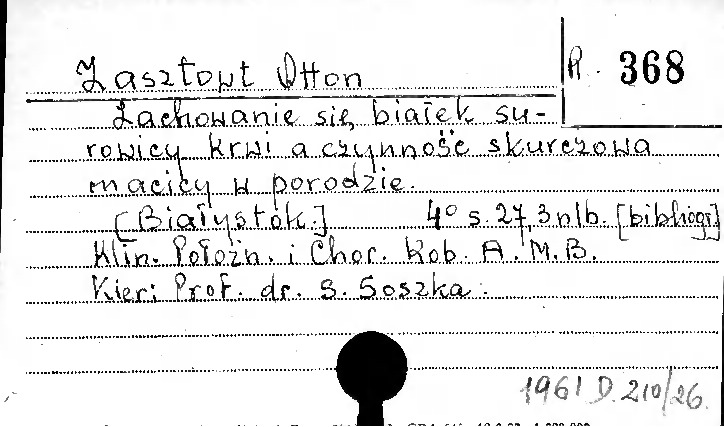 Zasztowt Otton
R. 368
Zachowanie się białek su-
rowicy krwi a czynność skurczowa
macicy w porodzie.
[Białystok.] 4° s. 27, 3 nlb. [bibliogr]
Klin. Położn. i Chor. Kob. A. M. B.
Kier: Prof. dr. S. Soszka.
1961 D. 210/26.